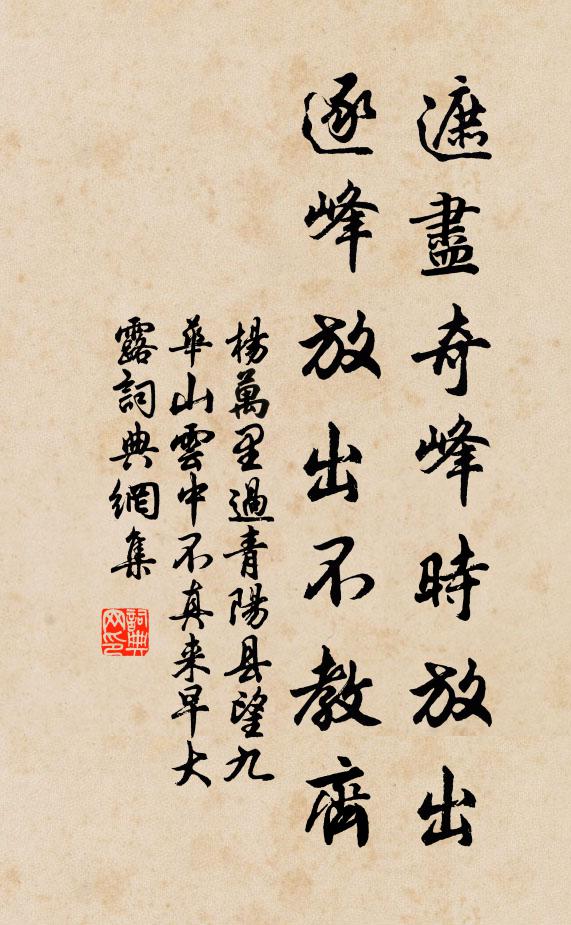 遮盡奇峰時放出
逐峰放出不教齊
楊萬里過青陽县望九
華山雲中不真来早大
露詞典網集
詞典網印